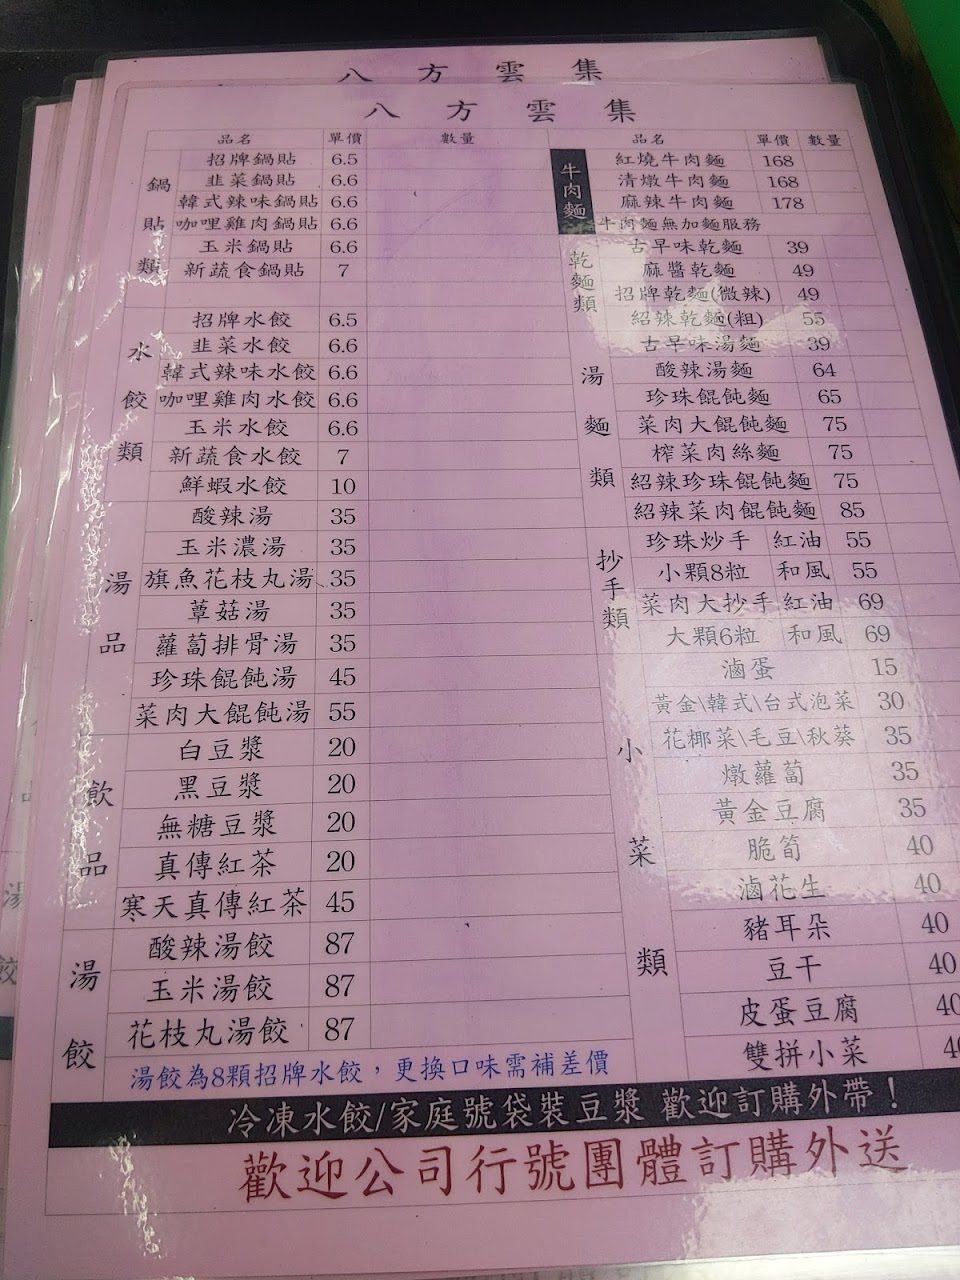 八方雲集
八方雲集
品名 單價 數量
鍋貼類
招牌鍋貼 6.5
韭菜鍋貼 6.6
韓式辣味鍋貼 6.6
咖哩雞肉鍋貼 6.6
玉米鍋貼 6.6
新蔬食鍋貼 7
水餃類
招牌水餃 6.5
韭菜水餃 6.6
韓式辣味水餃 6.6
咖哩雞肉水餃 6.6
玉米水餃 6.6
新蔬食水餃 7
鮮蝦水餃 10
湯品
酸辣湯 35
玉米濃湯 35
旗魚花枝丸湯 35
蕈菇湯 35
蘿蔔排骨湯 35
珍珠餛飩湯 45
菜肉大餛飩湯 55
飲品
白豆漿 20
黑豆漿 20
無糖豆漿 20
真傳紅茶 20
寒天真傳紅茶 45
湯餃
酸辣湯餃 87
玉米湯餃 87
花枝丸湯餃 87
湯餃為8顆招牌水餃，更換口味需補差價
品名 單價 數量
牛肉麵
紅燒牛肉麵 168
清燉牛肉麵 168
麻辣牛肉麵 178
牛肉麵無加麵服務
乾麵類
古早味乾麵 39
麻醬乾麵 49
招牌乾麵(微辣) 49
紹辣乾麵(粗) 55
湯麵類
古早味湯麵 39
酸辣湯麵 64
珍珠餛飩麵 65
菜肉大餛飩麵 75
榨菜肉絲麵 75
紹辣珍珠餛飩麵 75
紹辣菜肉餛飩麵 85
抄手類
珍珠炒手 紅油 55
小顆8粒 和風 55
菜肉大抄手 紅油 69
大顆6粒 和風 69
小菜類
滷蛋 15
黃金\韓式\台式泡菜 30
花椰菜\毛豆\秋葵 35
燉蘿蔔 35
黃金豆腐 35
脆筍 40
滷花生 40
豬耳朵 40
豆干 40
皮蛋豆腐 40
雙拼小菜
冷凍水餃/家庭號袋裝豆漿 歡迎訂購外帶！
歡迎公司行號團體訂購外送